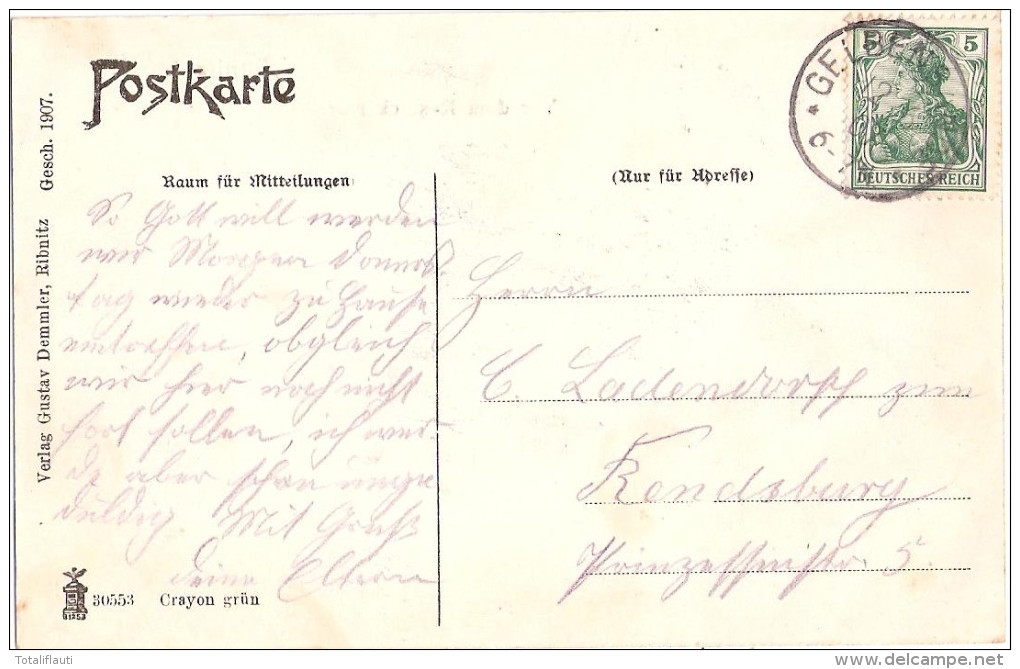 Postkarte
Raum für Mitteilungen
(Nur für Adresse)
5 5
DEUTSCHES REICH
* GELBEN
Verlag Gustav Demmler, Ribnitz Gesch. 1907.
So Gott will werden
wir Morgen Donners
tag wieder zu Hause
eintreffen, obgleich
wir hier noch nicht
fort sollen, ich wer-
de aber schon unge
duldig. Mit Gruß
deine Eltern
Herrn
C. Ladendorff
Rendsburg
Prinzessinstr. 5.
30553 Crayon grün
Totaliflauti
delcampe.net